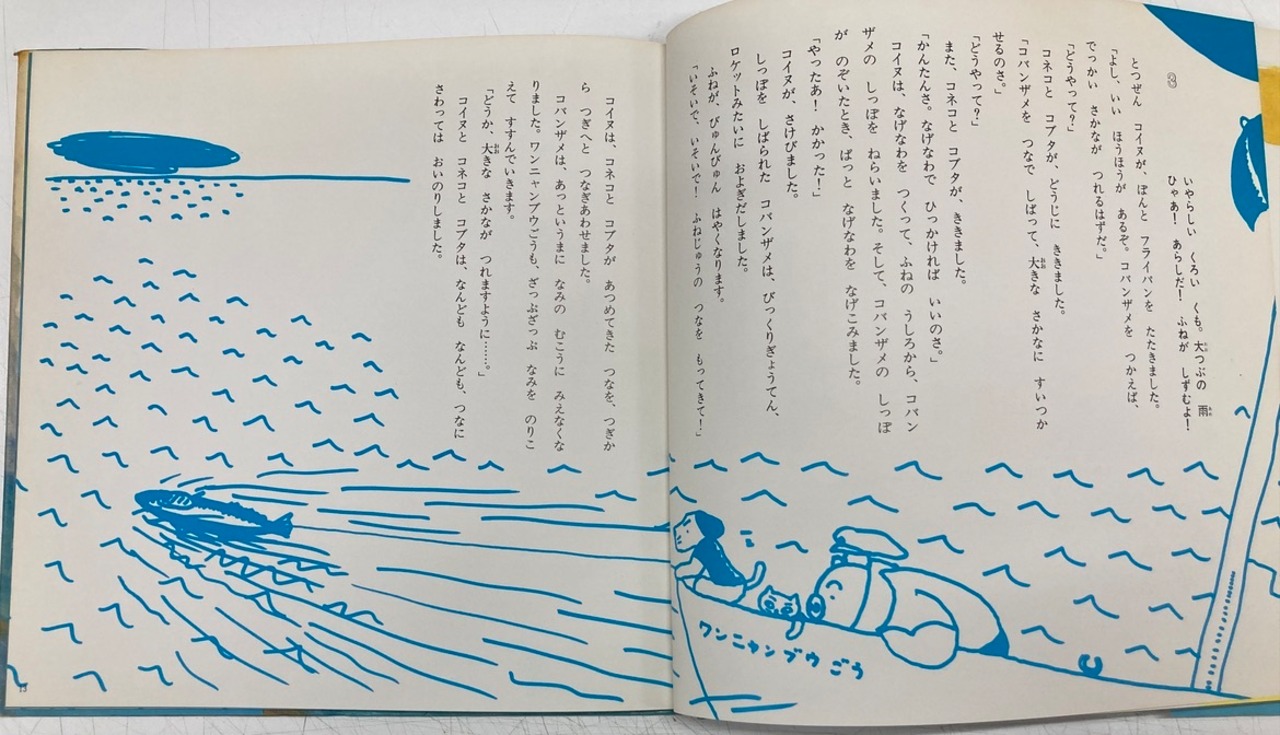 3
いやらしい くろい くも。大つぶの 雨
ひゃあ! あらしだ! ふねが しずむよ!
とつぜん コイヌが、ぽんと フライパンを たたきました。
「よし、いい ほうほうが あるぞ。コバンザメを つかえば、
でっかい さかなが つれるはずだ。」
「どうやって?」
コネコと コブタが、どうじに ききました。
「コバンザメを つなで しばって、大きな さかなに すいつか
せるのさ。」
「どうやって?」
また、コネコと コブタが、ききました。
「かんたんさ。なげなわで ひっかければ いいのさ。」
コイヌは、なげなわを つくって、ふねの うしろから、コバン
ザメの しっぽを ねらいました。そして、コバンザメの しっぽ
が のぞいたとき、ぱっと なげなわを なげこみました。
「やったあ! かかった!」
コイヌが、さけびました。
しっぽを しばられた コバンザメは、びっくりぎょうてん、
ロケットみたいに およぎだしました。
ふねが、びゅんびゅん はやくなります。
「いそいで、いそいで! ふねじゅうの つなを もってきて!」
コイヌは、コネコと コブタが あつめてきた つなを、つぎか
ら つぎへと つなぎあわせました。
コバンザメは、あっというまに なみの むこうに みえなくな
りました。ワンニャンブウごうも、ざっぷざっぷ なみを のりこ
えて すすんでいきます。
「どうか、大きな さかなが つれますように……。」
コイヌと コネコと コブタは、なんども なんども、つなに
さわっては おいのりしました。
ワンニャンブウ ごう
13